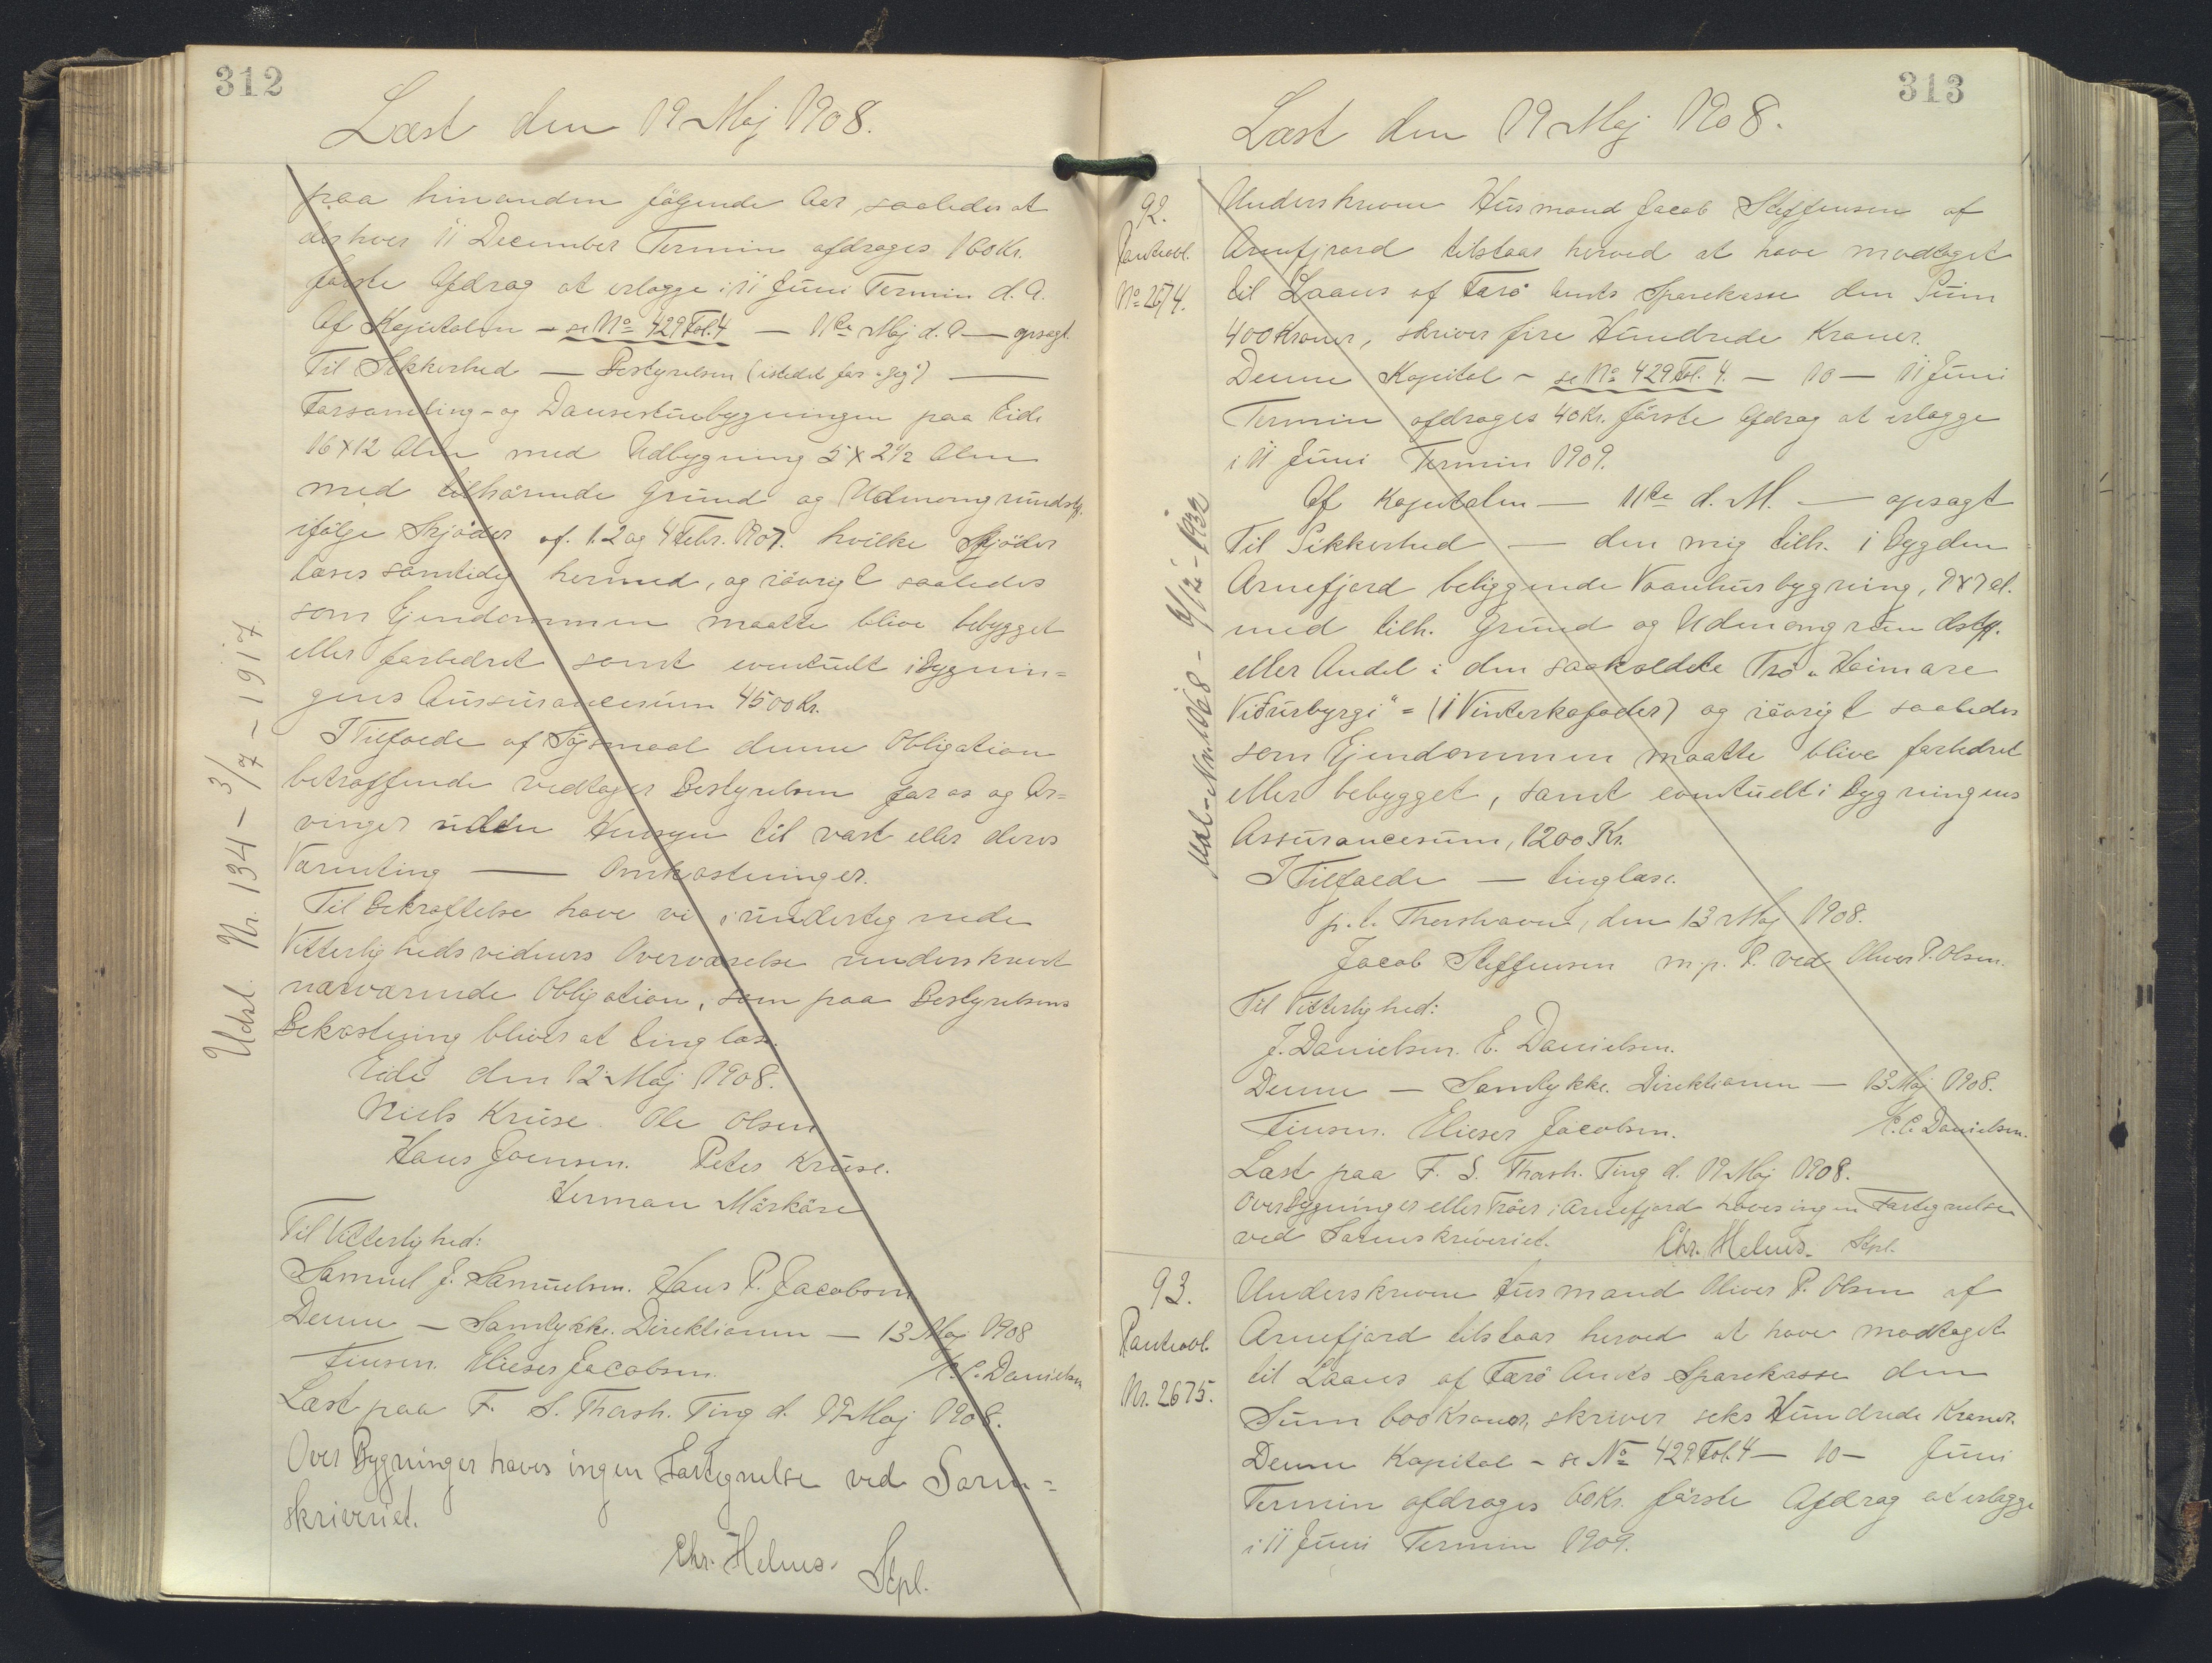 312
Læst den 19 Maj 1908.
paa hinanden følgende Aar, saaledes at
der hver 11 December Termin afdrages 160 Kr.
første Afdrag at erlægge i 11 Juni Termin d. A.
Af Kapitalen - se No 429 Fol. 4 — 11te Maj d. A — opsagt.
Til Sikkerhed — Bestyrelsen (istedet for "jeg") —
Forsamling- og Dansestuebygningen paa Eide
16 x 12 Alen med Udbygning 5 x 2½ Alen
med tilhørende Grund og Udenomgrundstk.
ifølge Skjøder af 1. 2 og 4 Febr. 1907. hvilke Skjøder
læses samtidig hermed, og iøvrigt saaledes
som Ejendommen maatte blive bebygget
eller forbedret samt eventuelt i Bygnin=
gens Aussurancesum 4500 Kr.
I Tilfælde af Søgsmaal denne Obligation
betræffende vedtager Bestyrelsen for os og Ar=
vinger uden Hensyn til vort eller deres
Værneting — Omkostninger.
Til Bekræftelse have vi i undertegnede
Vitterlighedsvidners Overværelse underskrevet
nærværende Obligation, som paa Bestyrelsens
Bekostning bliver at tinglæse.
Eide den 12 Maj 1908.
Niels Kruse. Ole Olsen
Hans Joensen. Peter Kruse.
Herman Mørkøre
Til Vitterlighed:
Samuel J. Samuelsen. Hans P. Jacobsen
Denne — Samtykke. Direktionen — 13 Maj 1908
Finsen. Elieser Jacobsen. H. C. Danielsen
Læst paa F. S. Thorsh. Ting d. 19 Maj 1908.
Over Bygninger haves ingen Fortegnelse ved Soren=
skriveriet.
Chr. Helms. Stpl.
Udsl. Nr. 134 - 3/7 - 1917
313
Læst den 19 Maj 1908.
92.
Panteobl.
No 2674.
Underskreven Husmand Jacob Steffensen af
Arnefjord tilstaar herved at have modtaget
til Laans af Færø Amts Sparekasse den Sum
400 Kroner, skriver fire Hundrede Kroner.
Denne Kapital - se No 429 Fol. 4. — 10 — 11 Juni
Termin afdrages 40 Kr. første Afdrag at erlægge
i 11 Juni Termin 1909.
Af Kapitalen — 11te d. M. — opsagt
Til Sikkerhed — den mig tilh. i Bygden
Arnefjord beliggende Vaanhusbygning, 9x7 al.
med tilh. Grund og Udenomgrundstk.
eller Andel i den saakaldte Trø "Heimare
Viđurbyrgi" = (1 Vinterkofoder) og iøvrigt saaledes
som Ejendommen maatte blive forbedret
eller bebygget, samt eventuelt i Bygningens
Assurancesum, 1200 Kr.
I Tilfælde — tinglæse.
p. t. Thorshavn, den 13 Maj 1908.
Jacob Steffensen m. p. P. ved Oliver P. Olsen.
Til Vitterlighed:
J. Danielsen. E. Danielsen.
Denne — Samtykke. Direktionen — 13 Maj 1908.
Finsen. Elieser Jacobsen. H. C. Danielsen.
Læst paa F. S. Thorsh. Ting d. 19 Maj 1908.
Over Bygninger eller Trøer i Arnefjord haves ingen Fortegnelse
ved Sorenskriveriet. Chr. Helms. Stpl.
Udsl. Nr. 1068 - 9/12 - 1932
93.
Panteobl.
Nr. 2675.
Underskreven Husmand Oliver P. Olsen af
Arnefjord tilstaar herved at have modtaget
til Laans af Færø Amts Sparekasse den
Sum 600 Kroner, skriver seks Hundrede Kroner.
Denne Kapital - se No 429 Fol. 4 — 10 — Juni
Termin afdrages 60 Kr. første Afdrag at erlægge
i 11 Juni Termin 1909.